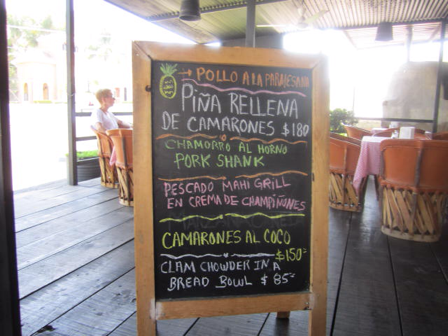 → POLLO A LA PARMESANA
PIÑA RELLENA
DE CAMARONES $180
CHAMORRO AL HORNO
PORK SHANK
PESCADO MAHI GRILL
EN CREMA DE CHAMPIÑONES
CAMARONES AL COCO
$150
CLAM CHOWDER IN A
BREAD BOWL $85